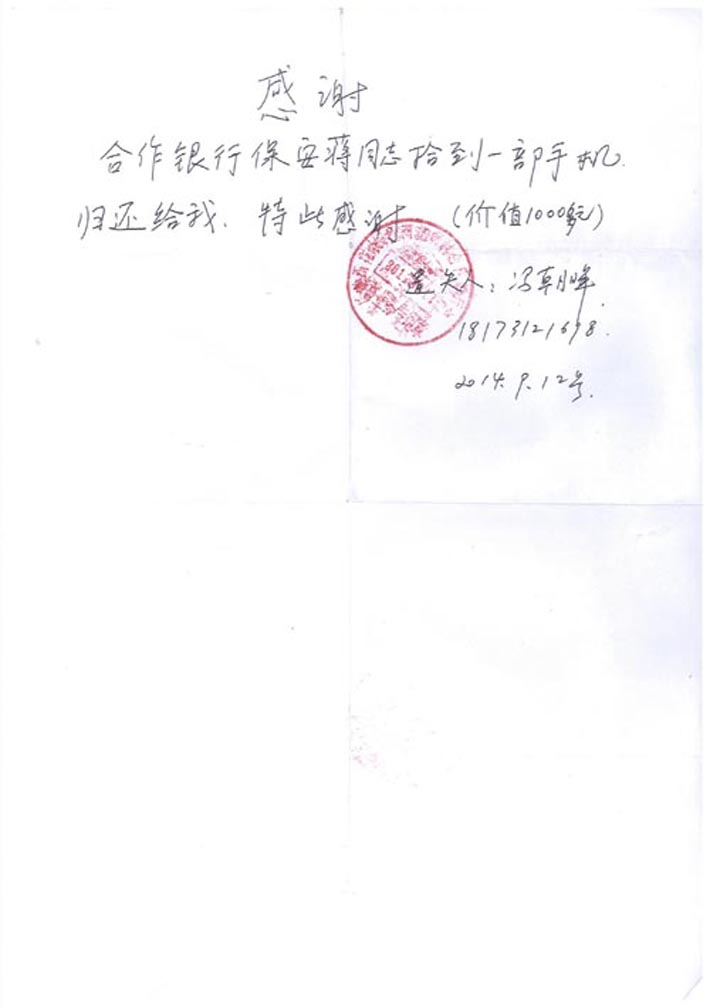 感谢
合作银行保安蒋同志拾到一部手机.
归还给我、特此感谢 (价值1000多元)
遗失人：冯朝晖
18173121698.
2014.9.12号.